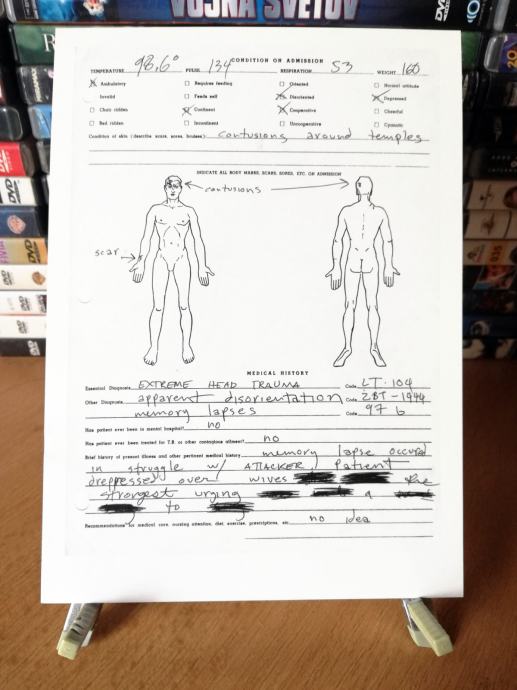 VOJNA SVETOV
DVD
CONDITION ON ADMISSION
TEMPERATURE 98,6° PULSE 134 RESPIRATION 53 WEIGHT 160
Ambulatory Requires feeding Oriented Normal attitude
Invalid Feeds self Disoriented Depressed
Chair ridden Continent Cooperative Cheerful
Bed ridden Incontinent Uncooperative Cyanotic
Condition of skin (describe scars, sores, bruises) contusions around temples
INDICATE ALL BODY MARKS, SCARS, SORES, ETC. ON ADMISSION
contusions
scar
MEDICAL HISTORY
Essential Diagnosis EXTREME HEAD TRAUMA Code LT-104
Other Diagnosis apparent disorientation Code 2BT-1944
memory lapses Code 97 b
Has patient ever been in mental hospital? no
Has patient ever been treated for T.B. or other contagious ailment? no
Brief history of present illness and other pertinent medical history memory lapse occured
in struggle w/ ATTACKER, Patient
drepresser over wives the
strongest urging a
to
Recommendations for medical care, nursing attention, diet, exercise, prescriptions, etc. no idea